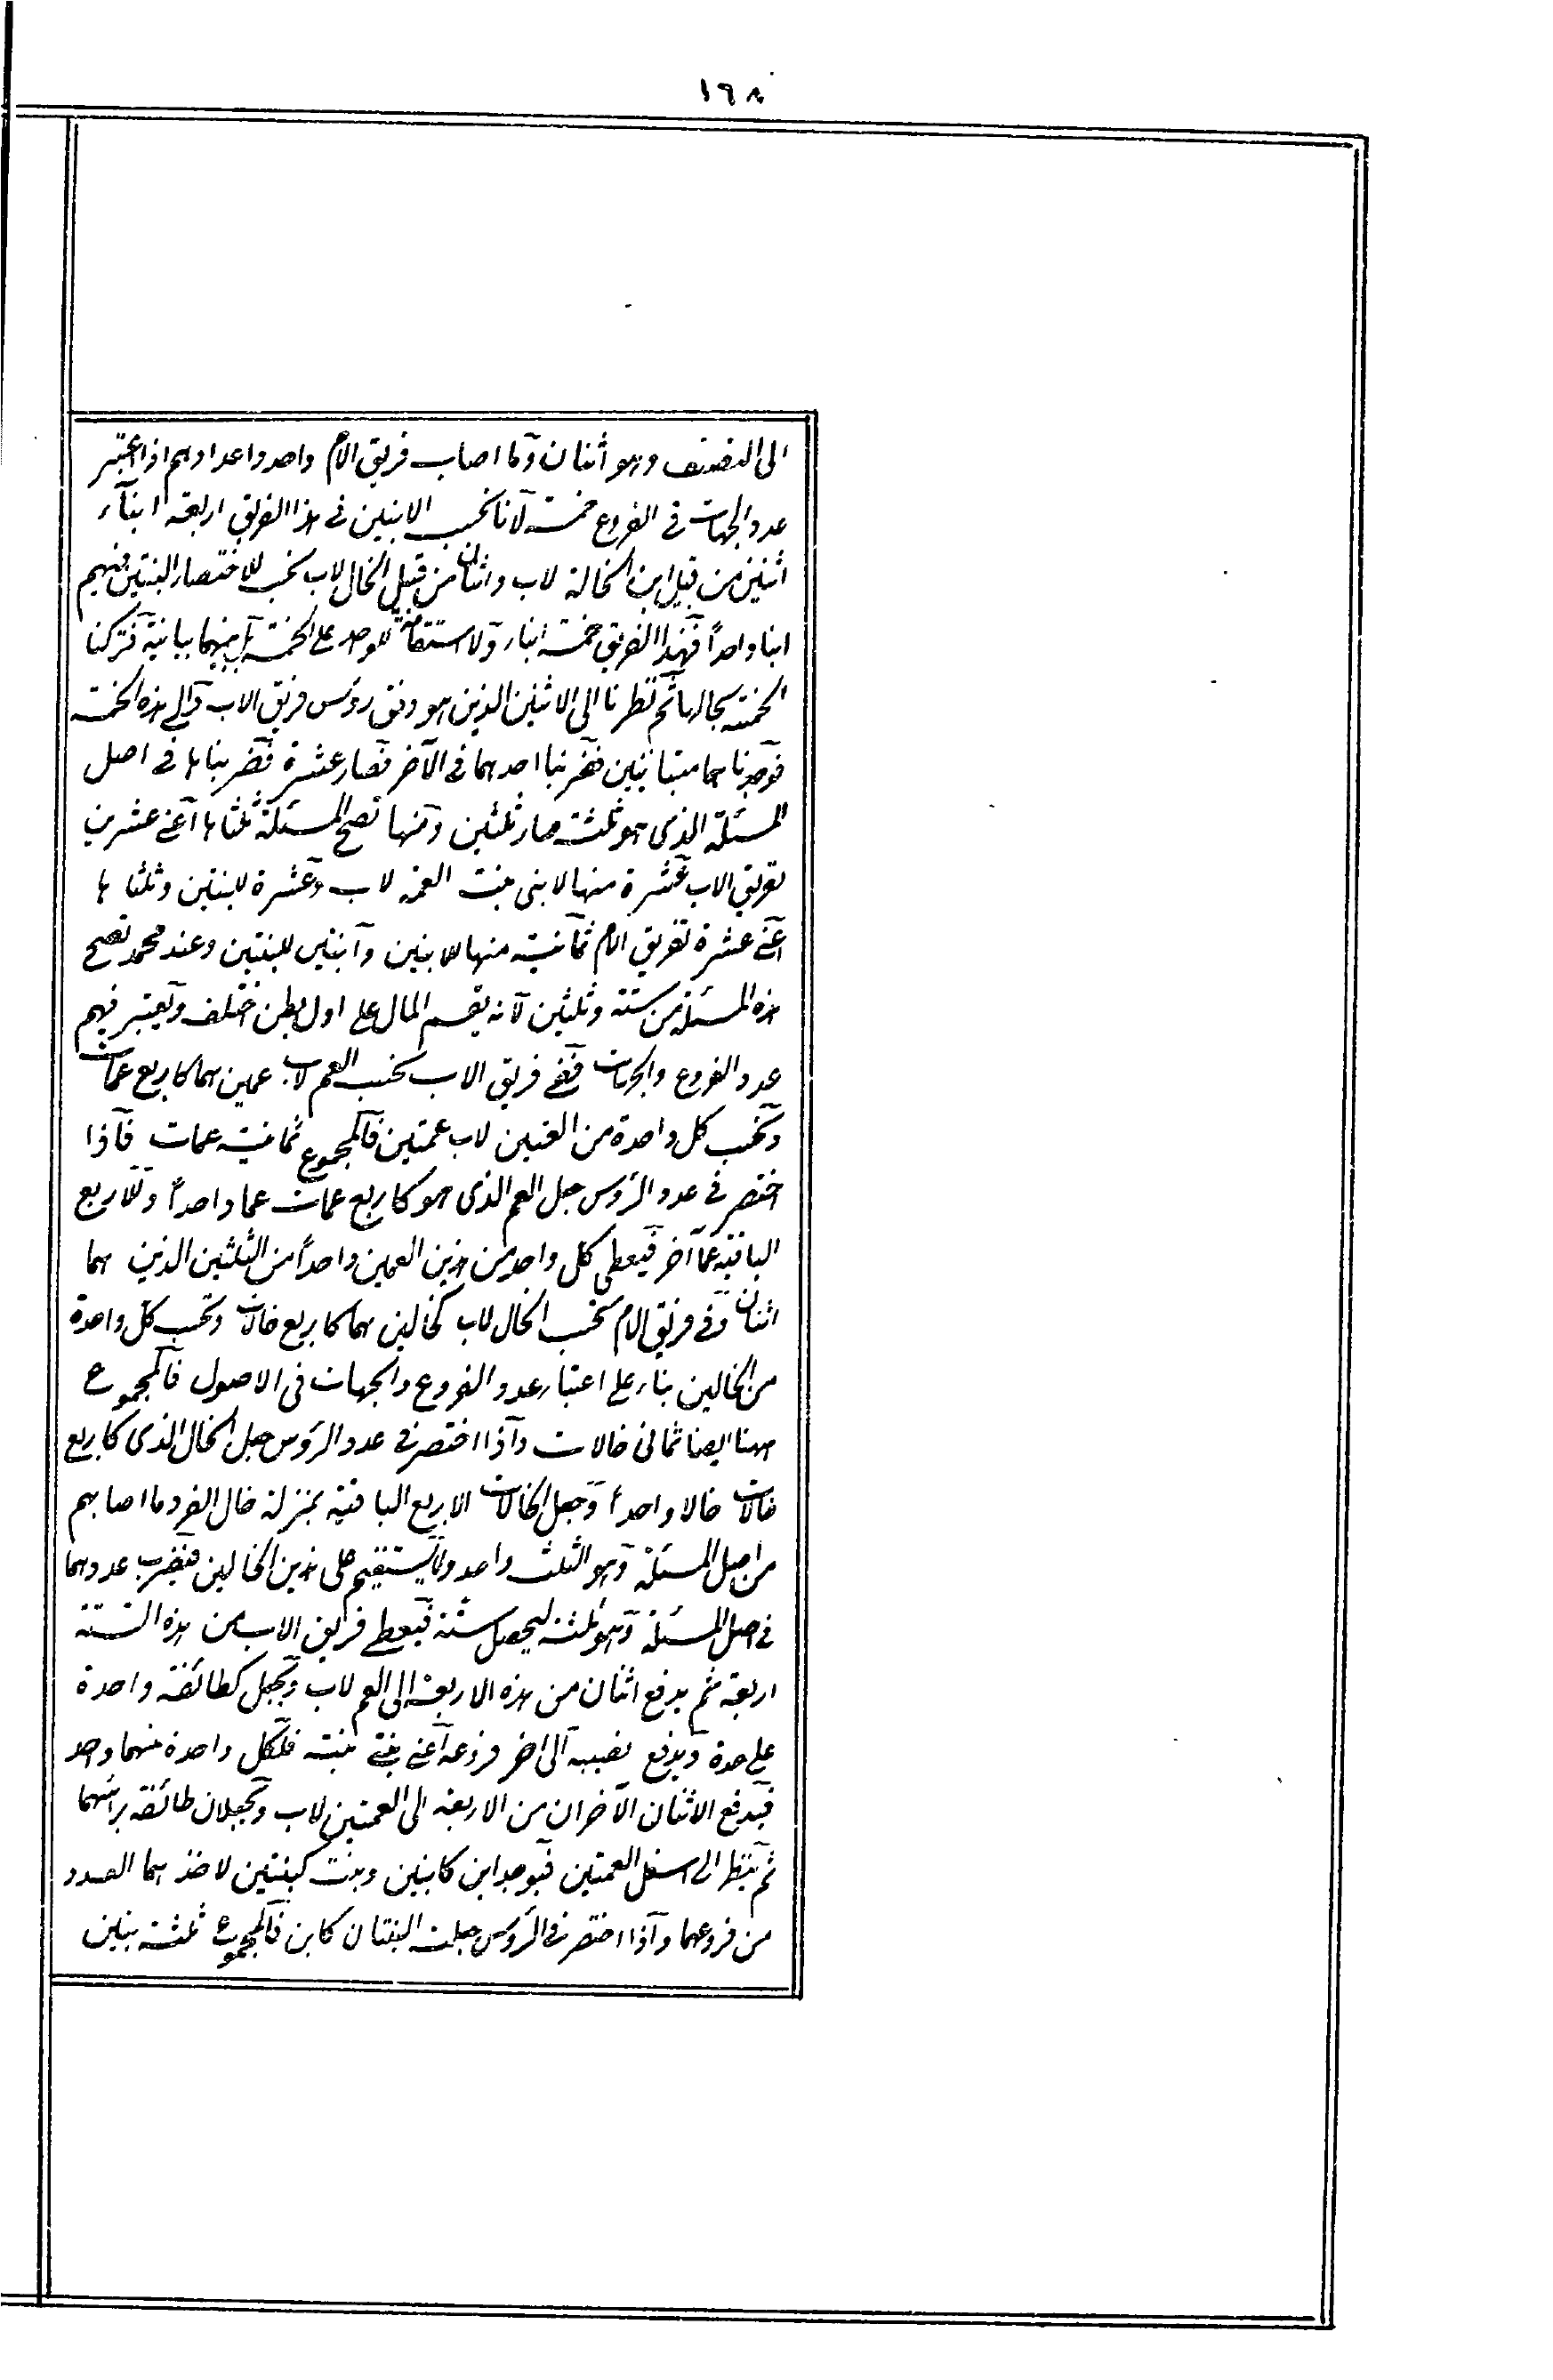 ١٦٨
الى النصف وهو اثنان وما اصاب فريق الام واحد واعدادهم اذا اعتبر
عدد الجهات فى الفروع خمسة لانا نحسب الابنين فى هذا الفريق اربعة ابناء
اثنين من قبل ابن الخالة لاب واثنان من قبل الخال لاب نحسب للاختصار البنتين منهم
ابنا واحداً فهذا الفريق خمسة ابناء ولا استقامة للواحد على الخمسة بل بينهما مباينة فتركنا
الخمسة بحالها ثم نظرنا الى الاثنين الذين هو وفق رؤس فريق الاب والى هذه الخمسة
فوجدناهما متبائنين فضربنا احدهما فى الآخر فصار عشرة فضربناها فى اصل
المسئلة الذى هو ثلثة صار ثلثين ومنها تصح المسئلة ثلثاها اعنى عشرين
لفريق الاب عشرة منها لابنى بنت العمة لاب وعشرة للبنتين وثلثها
اعنى عشرة لفريق الام ثمانية منها للابنين واثنين للبنتين وعند محمد تصح
هذه المسئلة من ستة وثلثين لانه يقسم المال على اول بطن اختلف ويعتبر فيهم
عدد الفروع والجهات ففى فريق الاب نحسب العم لاب عمين هما كاربع عمات
ونحسب كل واحدة من العمتين لاب عمتين فالمجموع ثمانية عمات فاذا
اختصر فى عدد الرؤس جعل العم الذى هو كاربع عمات عما واحداً وللاربع
الباقية عما آخر فيعطى كل واحد من هذين العمين واحداً من الثلثين الذين هما
اثنان وفى فريق الام نحسب الخال لاب كخالين هما كاربع خالات ونحسب كل واحدة
من الخالين بناء على اعتبار عدد الفروع والجهات فى الاصول فالمجموع
ههنا ايضا ثمانى خالات واذا اختصر فى عدد الرؤس جعل الخال الذى كاربع
خالات خالا واحداً وجعل الخالات الاربع الباقية بمنزلة خال الفرد ما اصابهم
من اصل المسئلة وهو الثلث واحد ولا يستقيم على هذين الخالين فيضرب عددهما
فى اصل المسئلة وهو ثلثة ليحصل ستة فيعطى فريق الاب من هذه الستة
اربعة ثم يدفع اثنان من هذه الاربعة الى العم لاب ويجعل كطائفة واحدة
على حدة ويدفع نصيبه الى اخر فروعه اعنى بنتى بنته فلكل واحدة منهما واحد
فيدفع الاثنان الآخران من الاربعة الى العمتين لاب وتجعلان طائفة برأسهما
ثم ينظر الى اسفل العمتين فيوجد ابن كابنين وبنت كبنتين لاخذهما العدد
من فروعهما واذا اختصر فى الرؤس جعلت البنتان كابن فالمجموع ثلثة بنين